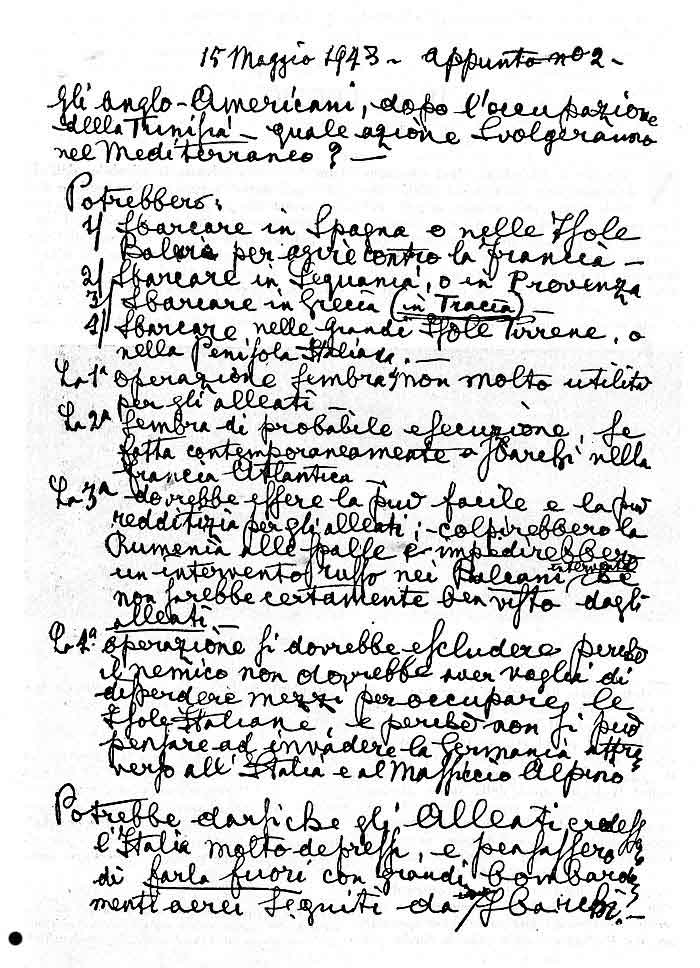 15 Maggio 1943 - appunto no 2 -
Gli anglo-Americani, dopo l'occupazione
della Tunisia - quale azione svolgeranno
nel Mediterraneo? -
Potrebbero:
1/ Sbarcare in Spagna o nelle Isole
Baleari per agire contro la Francia -
2/ Sbarcare in o in Provenza
3/ Sbarcare in Grecia (in Tracia) -
4/ Sbarcare nelle grandi Isole Tirrene, o
nella Penisola Italiana. -
La 1ª operazione sembra non molto utilità
per gli alleati -
La 2ª sembra di probabile esecuzione, se
fatta contemporaneamente a sbarchi nella
Francia Atlantica -
La 3ª - dovrebbe essere la più facile e la più
redditizia per gli alleati; - colpirebbero la
Rumenia alle spalle e impedirebbero
un intervento russo nei Balcani, intervento che
non sarebbe certamente ben visto dagli
alleati
La 4ª operazione si dovrebbe escludere perché
il nemico non dovrebbe aver voglia di
disperdere mezzi per occupare le
Isole Italiane, e perché non si può
pensare ad invadere la Germania attra
verso all'Italia e al Massiccio Alpino
Potrebbe darsi che gli Alleati credessero
l'Italia molto depressa, e pensassero
di farla fuori con grandi bombarda
menti aerei seguiti da sbarchi. -